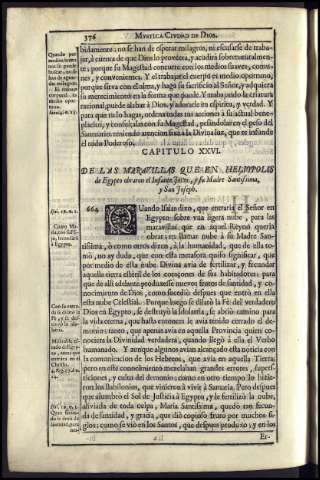 376 MYSTICA CIUDAD DE DIOS.
bidamente: no se han de esperar milagros, ni escusarse de traba-
jar, à cuenta de que Dios lo proveera, y acudira sobrenaturalmen-
te; porque su Magestad concurre con los medios suaves, comu-
nes, y convenientes. Y el trabajar el cuerpo es medio oportuno,
porque sirva con el alma, y haga su sacrificio al Señor, y adquiera
su merecimiento en la forma que puede. Y trabajando la criatura
racional, puede alabar à Dios, y adorarle en espiritu, y verdad. Y
para que tu lo hagas, ordena todas tus acciones à su actual bene-
placito, y consultalas con su Magestad, pesandolas en el peso del
Santuario, teniendo atencion fixa à la Divina luz, que te infunde
el todo Poderoso.
CAPITULO XXVI.
DE LAS MARAVILLAS QUE EN HELIOPOLIS
de Egypto obraron el Infante Jesus, y su Madre Santissima,
y San Joseph.
664 QUando Isaìas dixo, que entraria el Señor en
Egypto sobre una ligera nube, para las
maravillas que en aquel Reyno queria
obrar; en llamar nube à su Madre San-
tissima, ò como otros dizen, à la humanidad, que de ella to-
mò, no ay duda, que con esta metafora quiso significar, que
por medio de esta nube Divina avia de fertilizar, y fecundar
aquella tierra esteril de los coraçones de sus habitadores; para
que de alli adelante produxesse nuevos frutos de santidad, y co-
nocimiento de Dios, como sucediò despues que entrò en ella
esta nube Celestial. Porque luego se dilatò la Fè del verdadero
Dios en Egypto, se destruyò la Idolatria, se abriò camino para
la vida eterna, que hasta entonces le avia tenido cerrado el de-
monio; tanto, que apenas avia en aquella Provincia quien co-
nociera la Divinidad verdadera, quando llegò à ella el Verbo
humanado. Y aunque algunos avian alcançado esta noticia con
la comunicacion de los Hebreos, que avia en aquella Tierra,
pero en este conocimiento mezclaban grandes errores, super-
sticiones, y culto del demonio; como en otro tiempo lo hizie-
ron los Babilonios, que vinieron à vivir à Samaria. Pero despues
que alumbrò el Sol de Justicia à Egypto, y le fertilizò la nube,
aliviada de toda culpa, Maria Santissima, quedò tan fecun-
da de santidad, y gracia, que diò copioso fruto por muchos si-
glos; como se viò en los Santos, que despues produxo; y en los
Er-